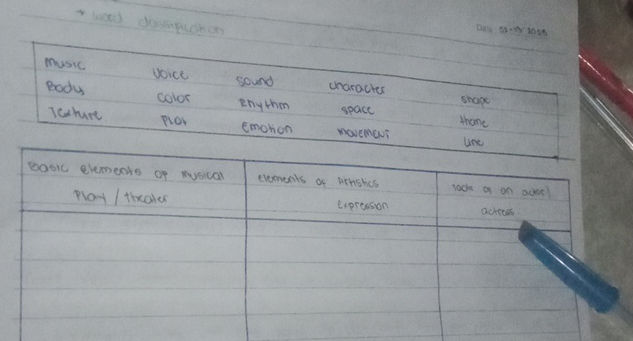 * word classification
music voice sound character shape
Body color Rhythm space theme
Texture Plot Emotion movement line
Basic elements of musical
Play / theater
elements of Artistics
Expression
tools of an actor/
actress